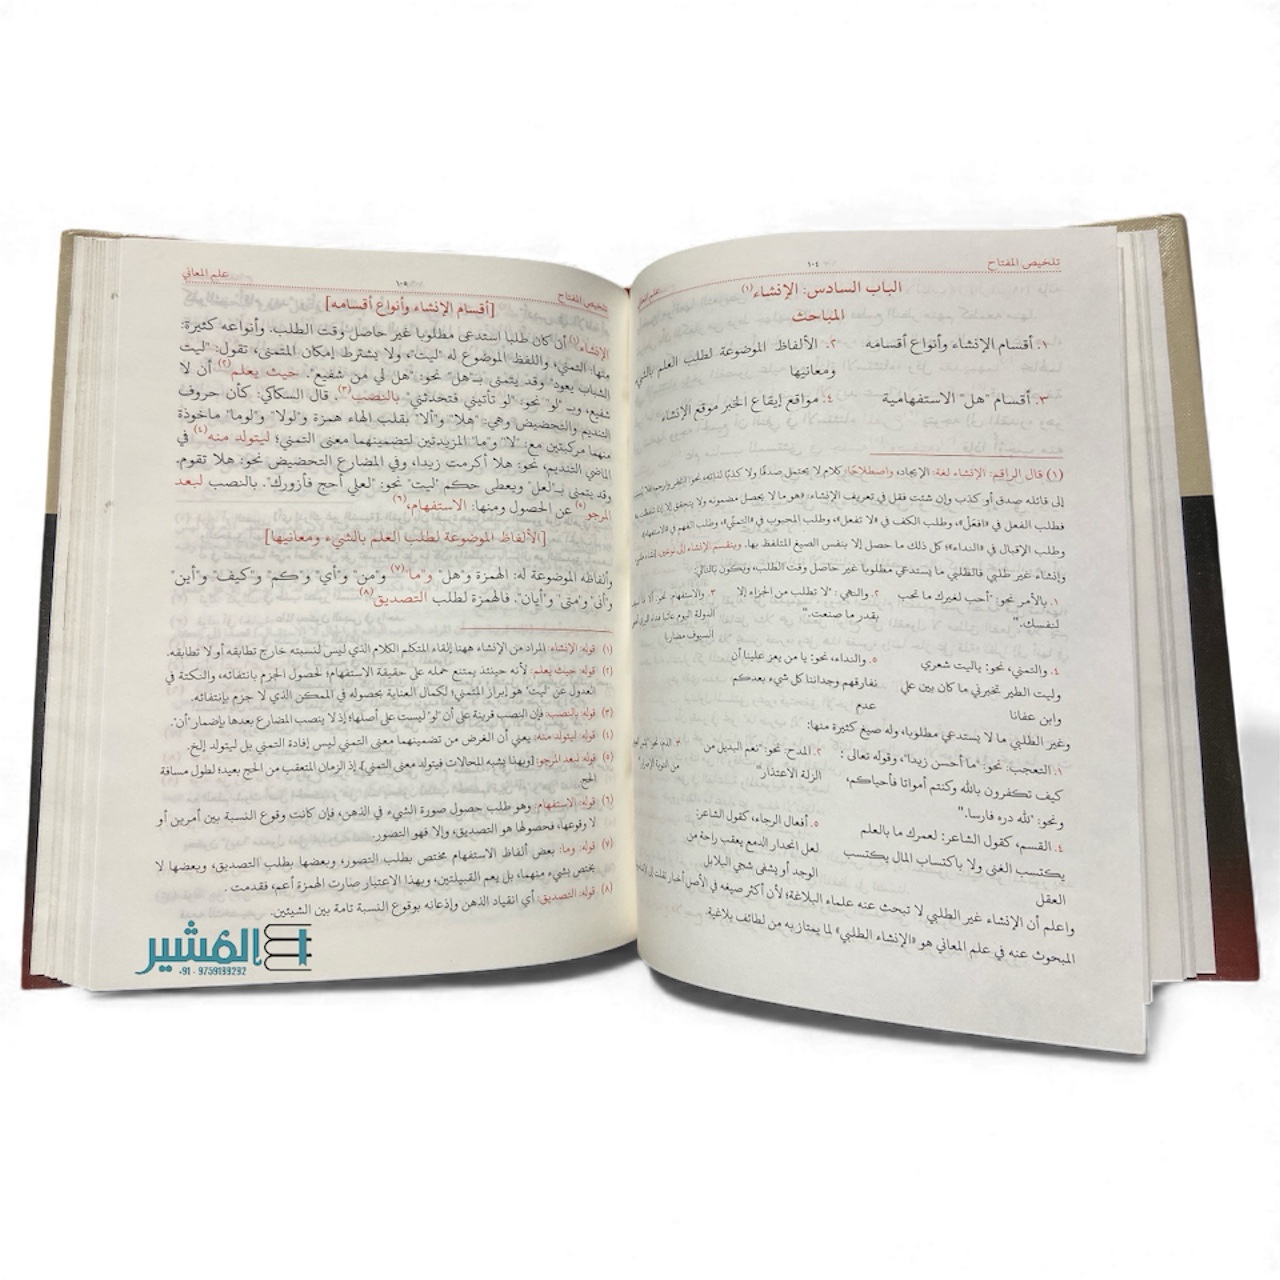 تلخيص المفتاح
١٠٤
علم المعاني
الباب السادس: الإنشاء(١)
المباحث
١. أقسام الإنشاء وأنواع أقسامه ٢. الألفاظ الموضوعة لطلب العلم بالشيء
ومعانيها
٣. أقسام "هل" الاستفهامية ٤. مواقع إيقاع الخبر موقع الإنشاء
(١) قال الراقم: الإنشاء لغة: الإيجاد، واصطلاحًا: كلام لا يحتمل صدقًا ولا كذبًا لذاته، نحو:
إلى قائله صدق أو كذب وإن شئت فقل في تعريف الإنشاء: «هو ما لا يحصل مضمونه ولا يتحقق إلا إذا تلفظت به
فطلب الفعل في «افعل»، وطلب الكف في «لا تفعل»، وطلب المحبوب في «التمني»، وطلب الفهم في «الاستفهام»
وطلب الإقبال في «النداء»؛ كل ذلك ما حصل إلا بنفس الصيغ المتلفظ بها. وينقسم الإنشاء إلى نوعين: إنشاء
وإنشاء غير طلبي فالطلبي ما يستدعي مطلوبا غير حاصل وقت الطلب، ويكون بالتالي:
١. بالأمر نحو: "أحب لغيرك ما تحب ٢. والنهي: "لا تطلب من الجزاء إلا ٣. والاستفهام، نحو:
لنفسك." بقدر ما صنعت."
السيوف مضاربا
٤. والتمني، نحو: ياليت شعري ٥. والنداء، نحو: يا من يعز علينا أن
وليت الطير تخبرني ما كان بين علي نفارقهم وجداننا كل شيء بعدكم
وابن عفانا عدم
وغير الطلبي ما لا يستدعي مطلوبا، وله صيغ كثيرة منها:
١. التعجب، نحو: "ما أحسن زيدا"، وقوله تعالى: ٢. المدح، نحو: "نعم البديل من ٣. الذم، نحو:
كيف تكفرون بالله وكنتم أمواتا فأحياكم، الزلة الاعتذار"
ونحو: "لله دره فارسا."
٤. القسم، كقول الشاعر: لعمرك ما بالعلم ٥. أفعال الرجاء، كقول الشاعر:
يكتسب الغنى ولا باكتساب المال يكتسب لعل انحدار الدمع يعقب راحة من
العقل الوجد أو يشفى شجي البلابل
واعلم أن الإنشاء غير الطلبي لا تبحث عنه علماء البلاغة؛ لأن أكثر صيغه في الأصل أخبار نقلت إلى
المبحوث عنه في علم المعاني هو «الإنشاء الطلبي» لما يمتاز به من لطائف بلاغية.
تلخيص المفتاح
١٠٥
علم المعاني
[أقسام الإنشاء وأنواع أقسامه]
الإنشاء(١) أن كان طلبا استدعى مطلوبا غير حاصل وقت الطلب. وأنواعه كثيرة:
منها: التمني، واللفظ الموضوع له "ليت"، ولا يشترط إمكان المتمنى، تقول: "ليت
الشباب يعود" وقد يتمنى بـ"هل" نحو: "هل لي من شفيع". حيث يعلم(٢) أن لا
شفيع، وبـ "لو" نحو: "لو تأتيني فتحدثني" بالنصب(٣). قال السكاكي: كأن حروف
التنديم والتحضيض وهي: "هلا" و"ألا" بقلب الهاء همزة و"لولا" و"لوما" ماخوذة
منهما مركبتين مع: "لا" و"ما" المزيدتين لتضمينهما معنى التمني؛ ليتولد منه(٤) في
الماضي التنديم، نحو: هلا أكرمت زيدا، وفي المضارع التحضيض نحو: هلا تقوم.
وقد يتمنى بـ"لعل" ويعطى حكم "ليت" نحو: "لعلي أحج فأزورك". بالنصب لبعد
المرجو(٥) عن الحصول ومنها: الاستفهام،(٦)
[الألفاظ الموضوعة لطلب العلم بالشيء ومعانيها]
وألفاظه الموضوعة له: الهمزة و"هل" و"ما"(٧) و"من" و"أي" و"كم" و"كيف" و"أين"
و"أنى" و"متى" و"أيان". فالهمزة لطلب التصديق(٨)
(١) قوله: الإنشاء: المراد من الإنشاء ههنا إلقاء المتكلم الكلام الذي ليس لنسبته خارج تطابقه أو لا تطابقه.
(٢) قوله: حيث يعلم: لأنه حينئذ يمتنع حمله على حقيقة الاستفهام؛ لحصول الجزم بانتفائه، والنكتة في
العدول عن "ليت" هو إبراز المتمنى؛ لكمال العناية بحصوله في الممكن الذي لا جزم بإنتفائه.
(٣) قوله: بالنصب: فإن النصب قرينة على أن "لو" ليست على أصلها؛ إذ لا ينصب المضارع بعدها بإضمار "أن".
(٤) قوله: ليتولد منه: يعني أن الغرض من تضمينهما معنى التمني ليس إفادة التمني بل ليتولد إلخ.
(٥) قوله: لبعد المرجو: [وبهذا يشبه المحالات فيتولد معنى التمني]. إذ الزمان المتعقب من الحج بعيد؛ لطول مسافة
الحج.
(٦) قوله: الاستفهام: وهو طلب حصول صورة الشيء في الذهن، فإن كانت وقوع النسبة بين أمرين أو
لا وقوعها، فحصولها هو التصديق، وإلا فهو التصور.
(٧) قوله: وما: بعض ألفاظ الاستفهام مختص بطلب التصور، وبعضها بطلب التصديق، وبعضها لا
يختص بشيء منهما، بل يعم القبيلتين، وبهذا الاعتبار صارت الهمزة أعم، فقدمت.
(٨) قوله: التصديق: أي انقياد الذهن وإذعانه بوقوع النسبة تامة بين الشيئين.
المشير
+91 - 9759199292